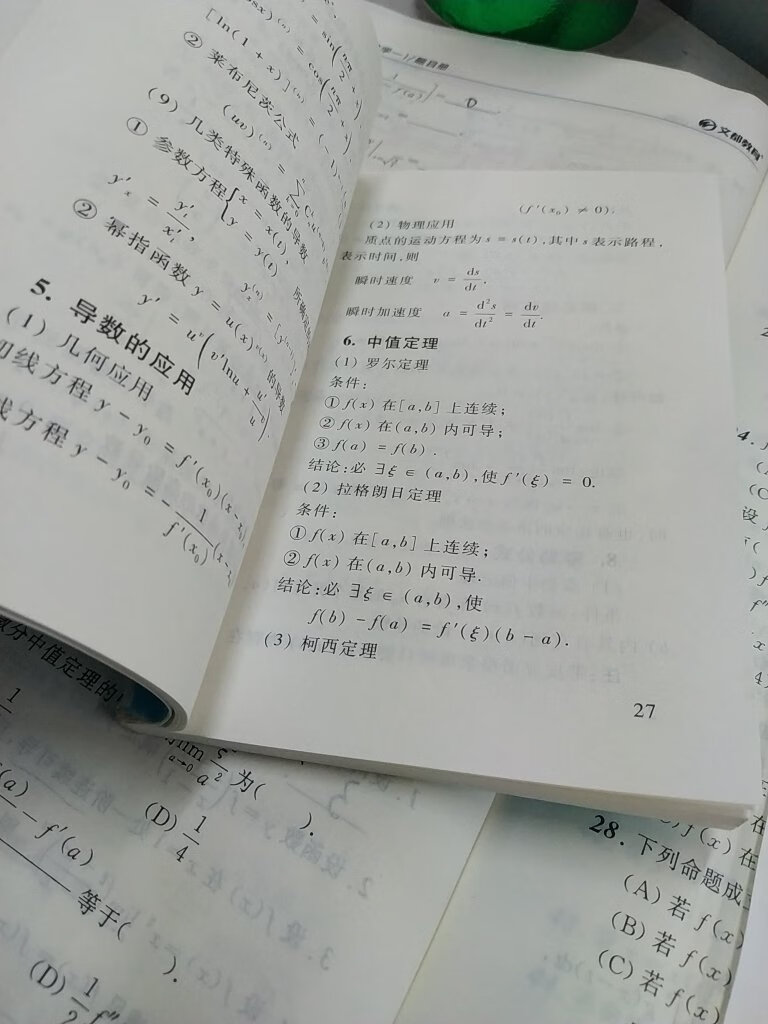 [ln(1+x)]⁽ⁿ⁾ = (-1)
② 莱布尼茨公式
(uv)⁽ⁿ⁾ = ∑
(9) 几类特殊函数的导数
① 参数方程{x = x(t), y = y(t)
y'ₓ = y'ₜ/x'ₜ,
② 幂指函数 y = u(x)^{v(x)} 的导数
y' = uᵛ(v'lnu + u'v/u).
5. 导数的应用
(1) 几何应用
切线方程 y - y₀ = f'(x₀)(x - x₀)
线方程 y - y₀ = -1/f'(x₀)(x - x₀)
(f'(x₀) ≠ 0).
(2) 物理应用
质点的运动方程为 s = s(t),其中 s 表示路程,
表示时间,则
瞬时速度 v = ds/dt.
瞬时加速度 a = d²s/dt² = dv/dt.
6. 中值定理
(1) 罗尔定理
条件:
① f(x) 在[a,b] 上连续;
② f(x) 在(a,b) 内可导;
③ f(a) = f(b).
结论:必 ∃ξ ∈ (a,b),使 f'(ξ) = 0.
(2) 拉格朗日定理
条件:
① f(x) 在[a,b] 上连续;
② f(x) 在(a,b) 内可导.
结论:必 ∃ξ ∈ (a,b),使
f(b) - f(a) = f'(ξ)(b - a).
(3) 柯西定理
27
文都教育
D
微分中值定理的
lim a→0 ξ²/a² 为( ).
(D) 1/4
- f'(a)
等于( ).
(D) 1/2 f''
28. 下列命题成立
(A) 若 f(x)
(B) 若 f(x)
(C) 若 f(x)